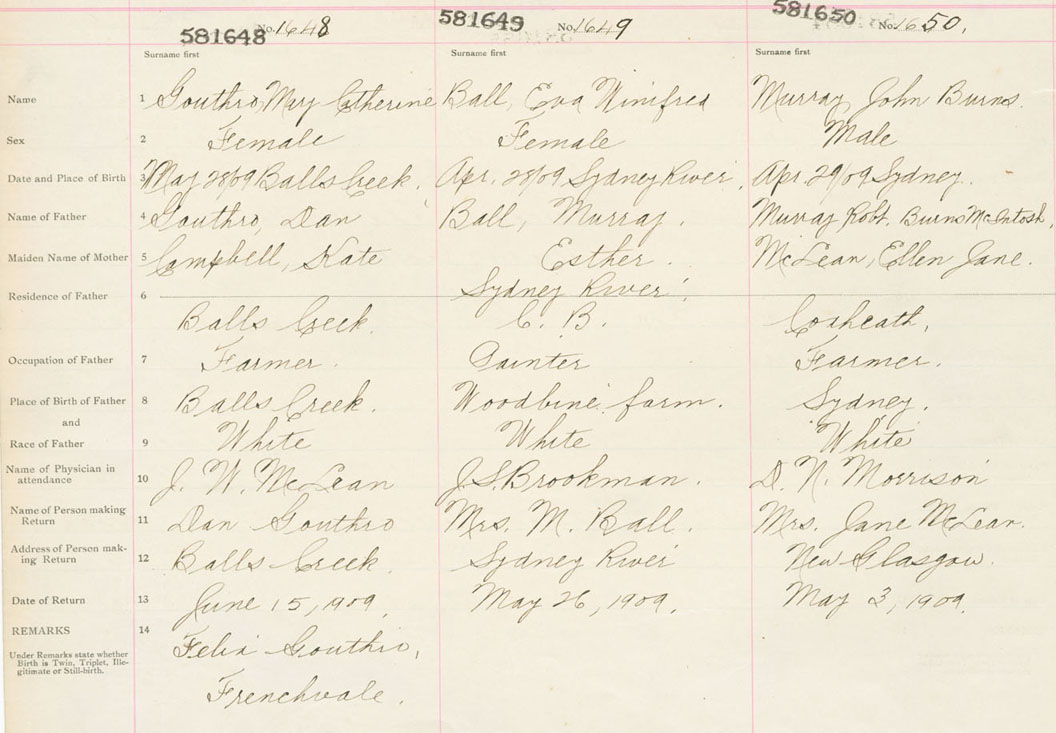 581648 No. 1648 581649 No. 1649 581650 No. 1650,
Surname first Surname first Surname first
Name 1 Gouthro, Mary Catherine Ball, Eva Winifred Murray, John Burns.
Sex 2 Female Female Male
Date and Place of Birth 3 May 28/09 Balls Creek. Apr. 28/09 Sydney River. Apr. 29/09 Sydney.
Name of Father 4 Gouthro, Dan Ball, Murray. Murray Robt. Burns McIntosh.
Maiden Name of Mother 5 Campbell, Kate Esther. McLean, Ellen Jane.
Residence of Father 6 Sydney River.
Balls Creek. C. B. Coxheath.
Occupation of Father 7 Farmer. Painter Farmer.
Place of Birth of Father 8 Balls Creek. Woodbine farm. Sydney.
and
Race of Father 9 White White White
Name of Physician in
attendance 10 J. W. McLean J.S. Brookman. D. N. Morrison
Name of Person making
Return 11 Dan Gouthro Mrs. M. Ball. Mrs. Jane McLean.
Address of Person mak-
ing Return 12 Balls Creek. Sydney River New Glasgow.
Date of Return 13 June 15, 1909. May 26, 1909. May 3, 1909.
REMARKS 14
Felix Gouthro,
Under Remarks state whether
Birth is Twin, Triplet, Ille-
gitimate or Still-birth.
Frenchvale.